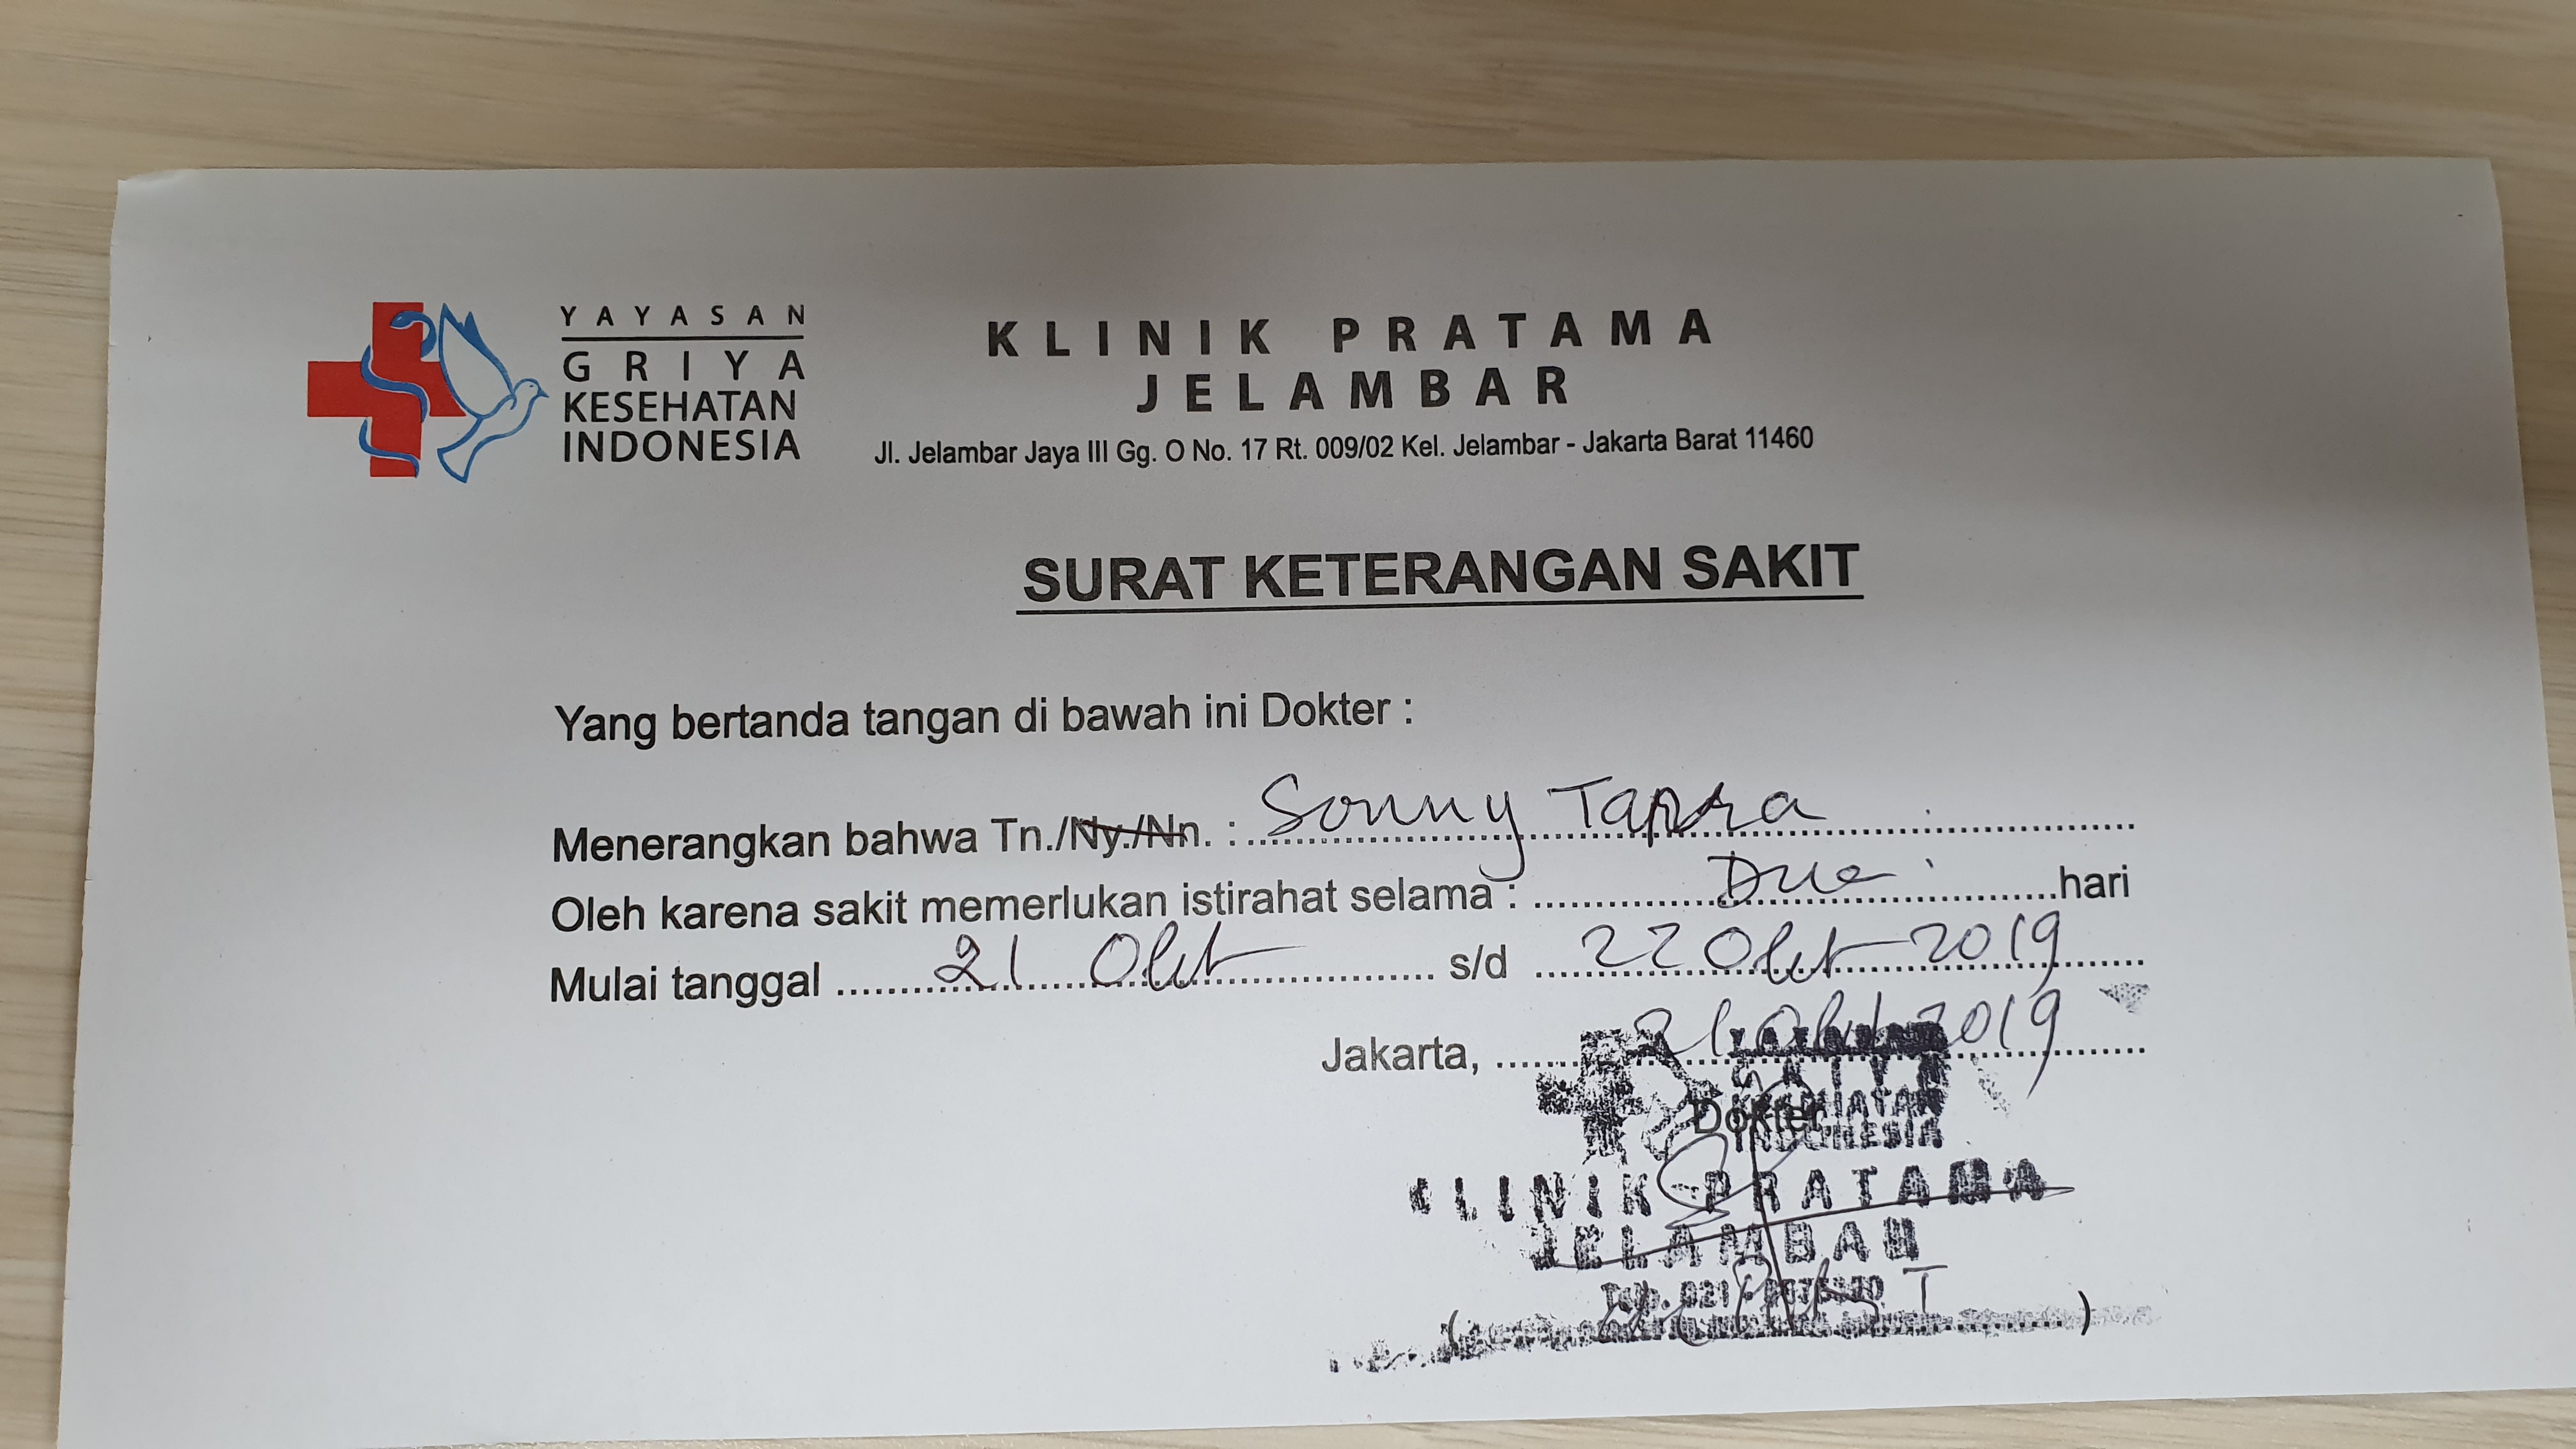 YAYASAN
GRIYA
KESEHATAN
INDONESIA
KLINIK PRATAMA
JELAMBAR
Jl. Jelambar Jaya III Gg. O No. 17 Rt. 009/02 Kel. Jelambar - Jakarta Barat 11460
SURAT KETERANGAN SAKIT
Yang bertanda tangan di bawah ini Dokter :
Menerangkan bahwa Tn./Ny./Nn. : Sonny
Oleh karena sakit memerlukan istirahat selama : Dua hari
Mulai tanggal 21 Okt s/d 22 Okt 2019
Jakarta, 21 Okt 2019
Dokter
KLINIK PRATAMA
JELAMBAR
( )